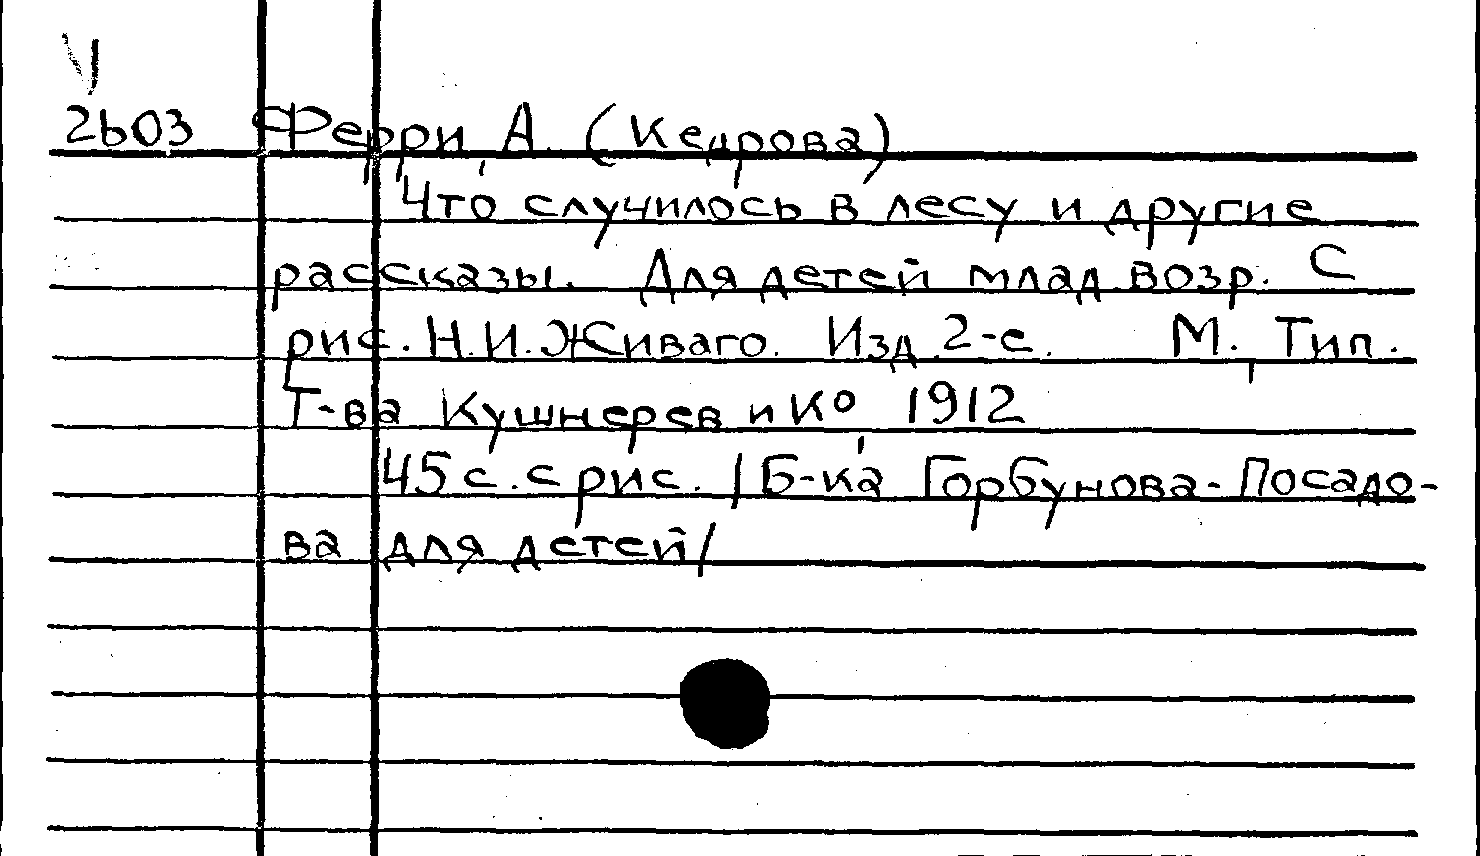 V
2603 Ферри, А. (Кедрова)
Что случилось в лесу и другие
рассказы. Для детей млад. возр. С
рис. Н.И.Живаго. Изд. 2-е. М., Тип.
Т-ва Кушнерев и Кº, 1912
45 с. с рис. /Б-ка Горбунова-Посадо-
ва для детей/